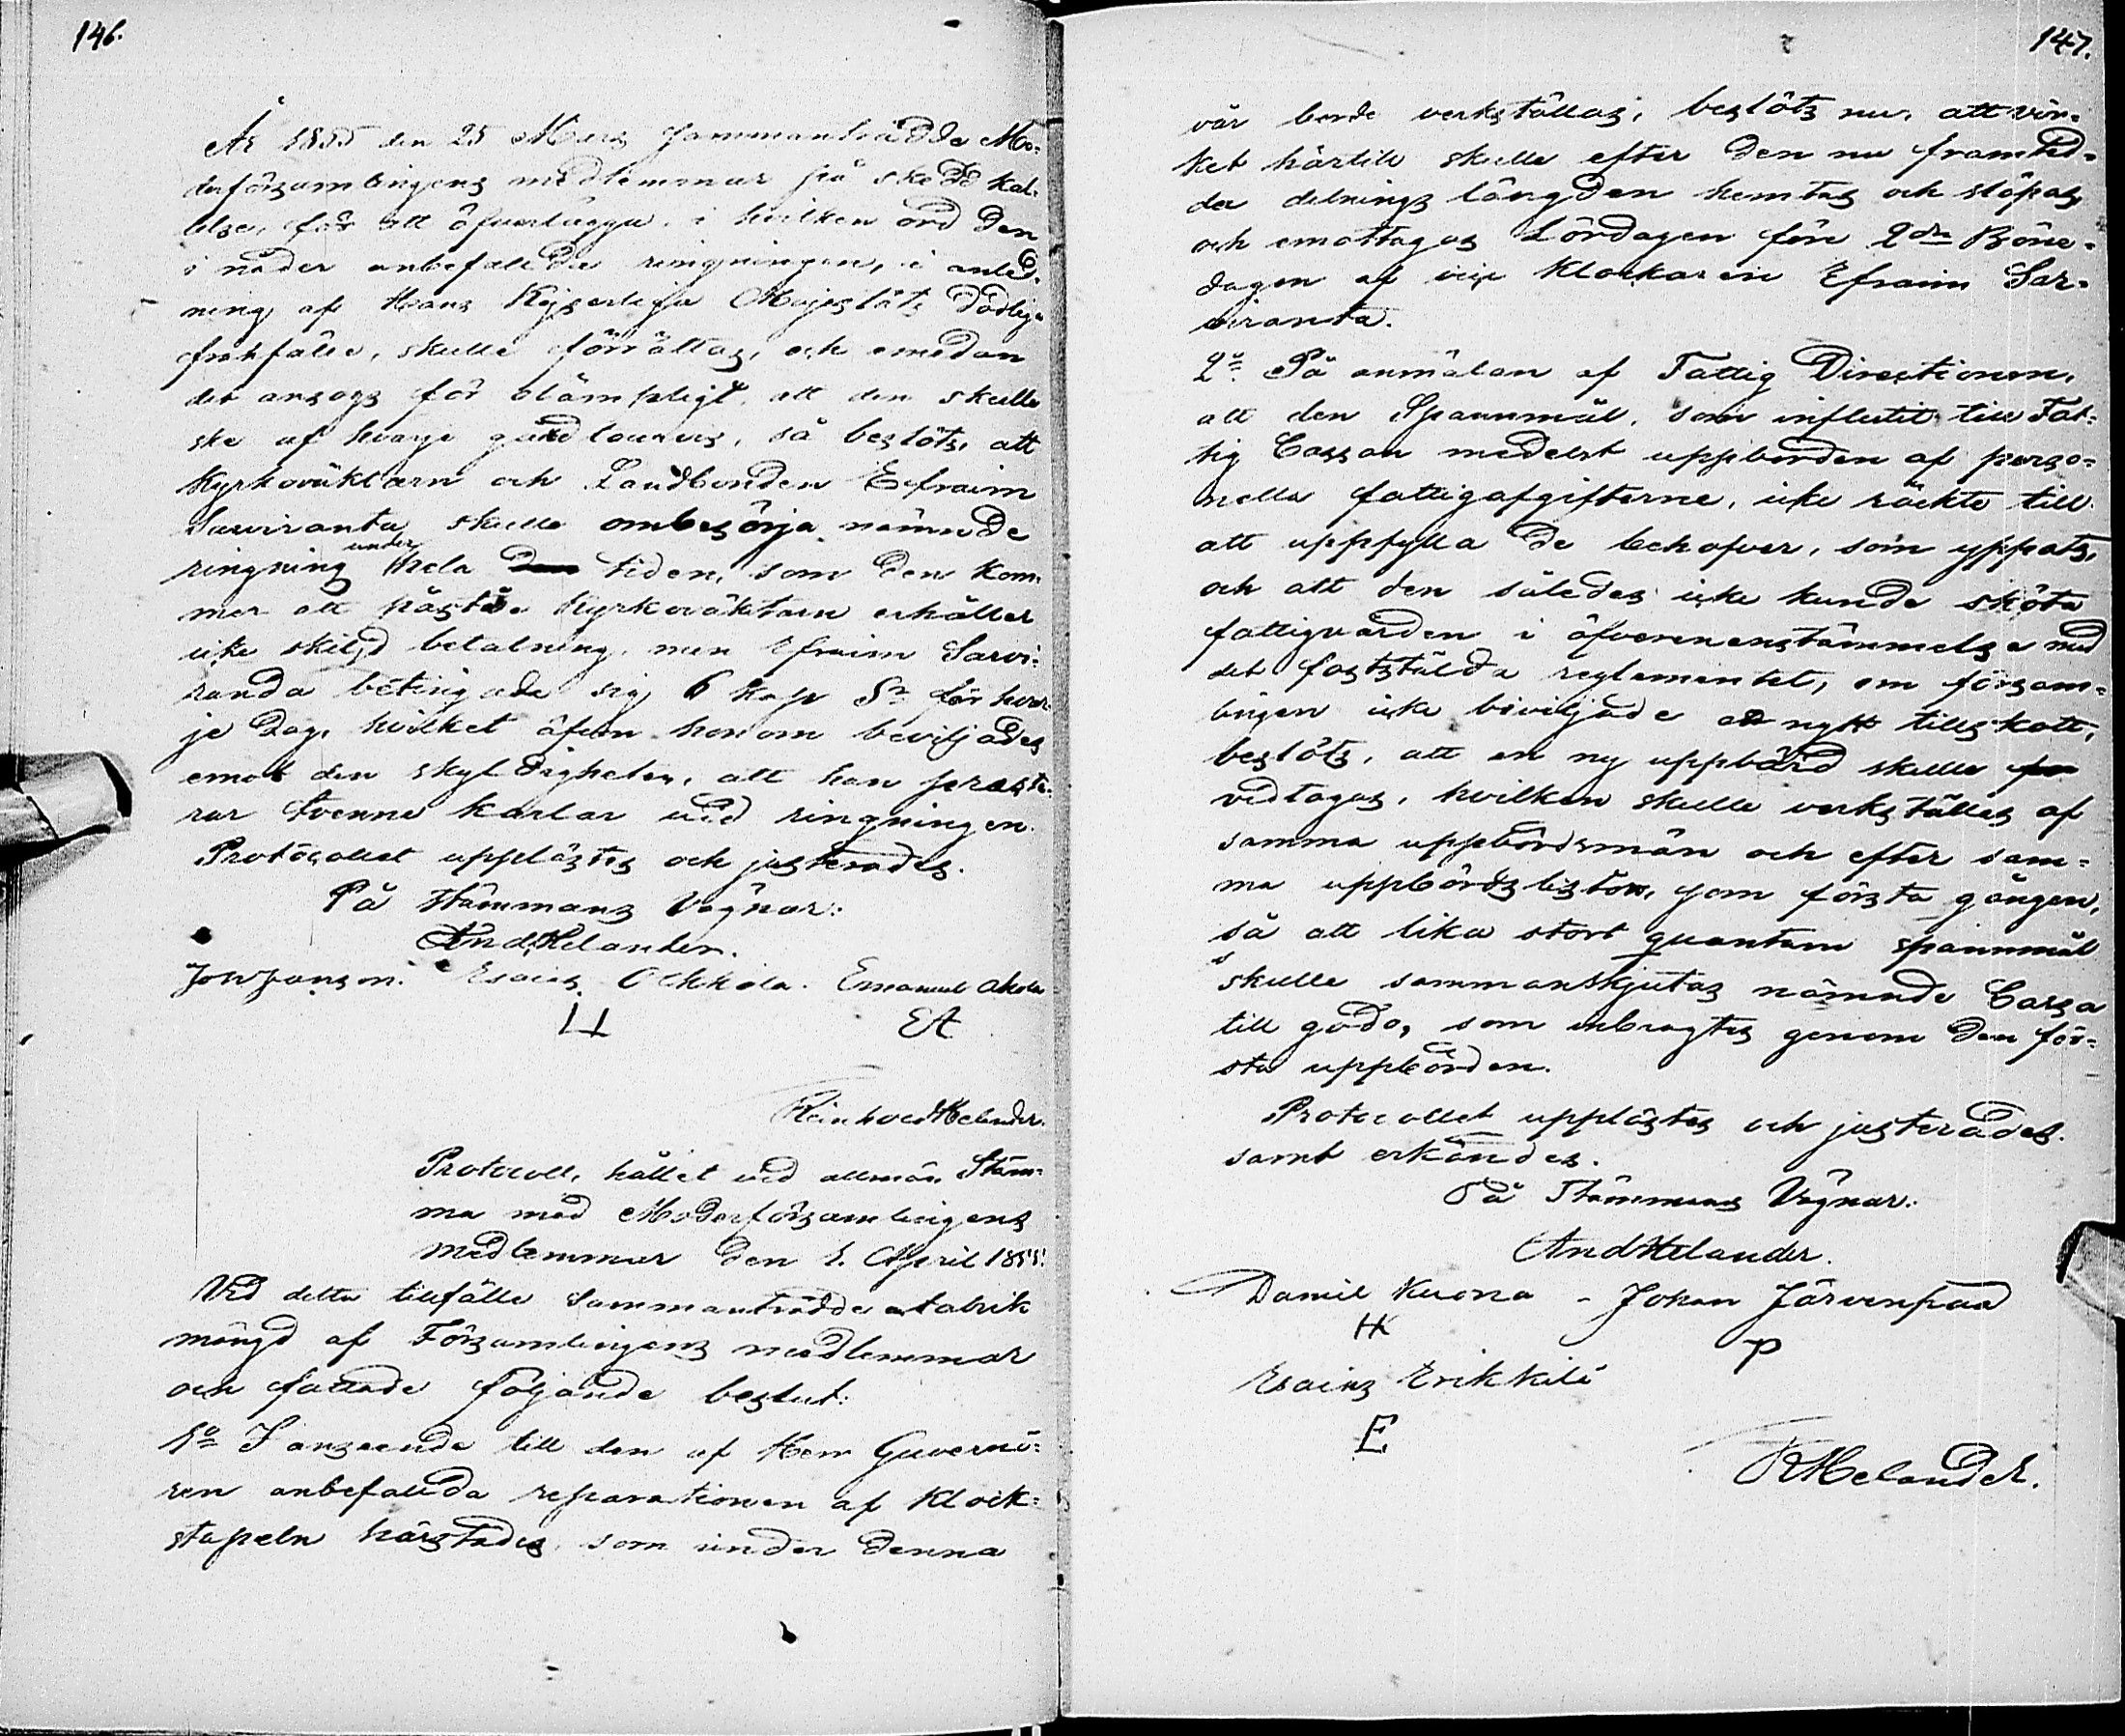 146.
År 1855 den 25 Mars sammanträdde Mo-
derförsamlingens medlemmar på skedd kal-
lelse, för att öfverlägga, i hvilken ord den
i nåder anbefallda ringningen, i anled-
ning af Hans Kejserliga Majestäts dödliga
frånfälle, skulle förrättas, och emedan
det ansågs för olämpligt, att den skulle
ske af hvarje gårdtourvis, så beslöts, att
Kyrkoväktarn och Landbonden Efraim
Sarviranta skulle ombesörja nämnde
ringning under hela den tiden, som den kom-
mer att påstå. Kyrkoväktarn erhåller
icke skild betalning, men Efraim Sarvi-
randa betingade sig 6 kop Sr för hvar-
je dag, hvilket äfven honom beviljades
emot den skyldigheten, att han preste-
rar tvenne karlar vid ringningen.
Protocollet upplästes och justerades.
På Stämmans Vägnar:
And Helander.
Esaias Ochkola. Emanuel Ahola
EA
Reinhold Helander.
Protocoll, hållet vid allmän Stäm-
ma med Moderförsamlingens
medlemmar den 1. April 1855.
Vid detta tillfälle sammanträdde en talrik
mängd af Församlingens medlemmar
och fattade följande beslut:
1o I anseende till den af Herr Guvernö-
ren anbefallda reparationen af Klock-
stapeln härstädes, som under denna
147.
vår borde verkställas, beslöts nu, att vir-
ket härtill skulle efter den nu framled-
da delnings längden hemtas och släpas,
och emottagas Lördagen före 2dra Böne-
dagen af vice Klockaren Efraim Sar-
viranta.
2o På anmälan af Fattig Directionen,
att den Spannmål, som influtit till Fat-
tig Cassan medelst uppbörden af perso-
nella fattigafgifterne, icke räckte till
att uppfylla de behofver, som yppats,
och att den således icke kunde sköta
fattigvården i öfverensstämmelse med
det fastställda reglementet, om försam-
lingen icke beviljade nytt tillskott,
beslöts, att en ny uppbärd skulle
vidtagas, hvilken skulle verkställes af
samma uppbördsmän och efter sam-
ma uppbördslistor, som första gången,
så att lika stort quantum spannmål
skulle sammanskjutas nämnde Cassa
till godo, som inbragtes genom den för-
sta uppbörden.
Protocollet upplästes och justerades
samt erkändes.
På Stämmans Vägnar:
And Helander.
Daniel Kuona - Johan Järvenpää
HK P
Esaias Erikkilä
E
RHelander.